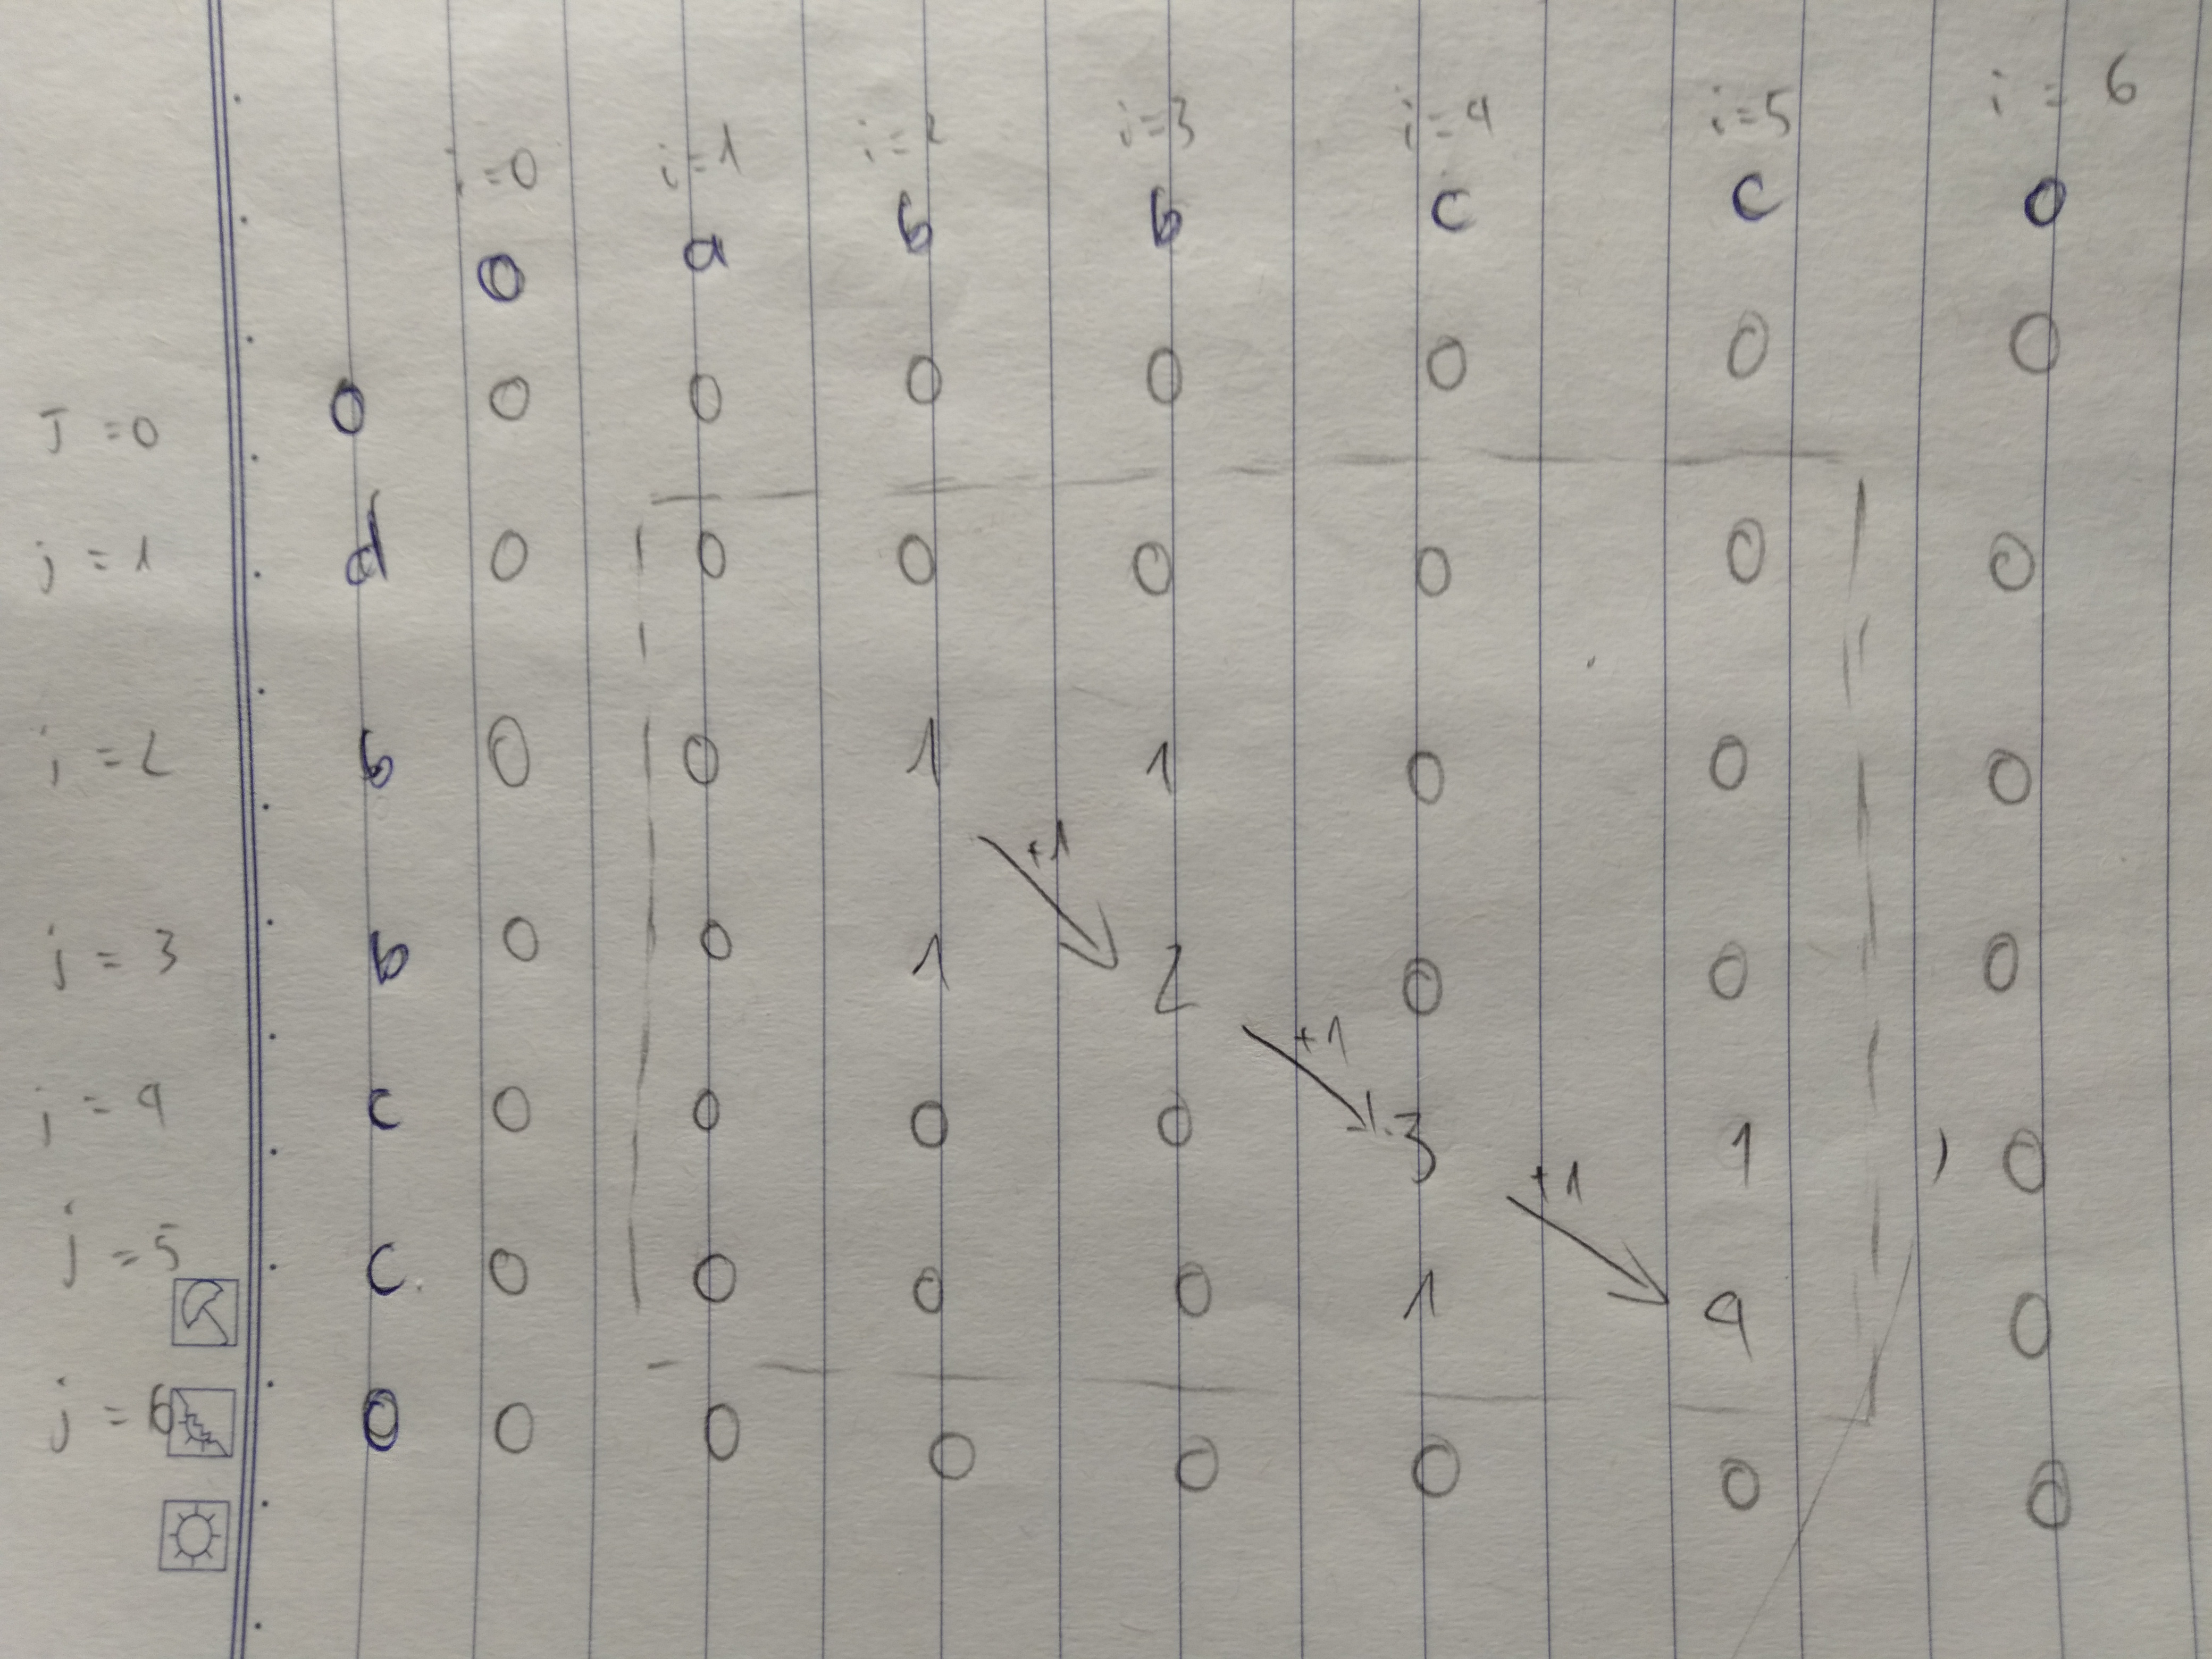 i=0 i=1 i=2 i=3 i=4 i=5 i=6
0 a b b c c 0
J=0 0 0 0 0 0 0 0 0
j=1 d 0 0 0 0 0 0 0
j=2 b 0 0 1 1 0 0 0
+1
j=3 b 0 0 1 2 0 0 0
+1
j=4 c 0 0 0 0 3 1 0
+1
j=5 c 0 0 0 0 1 4 0
j=6 0 0 0 0 0 0 0 0